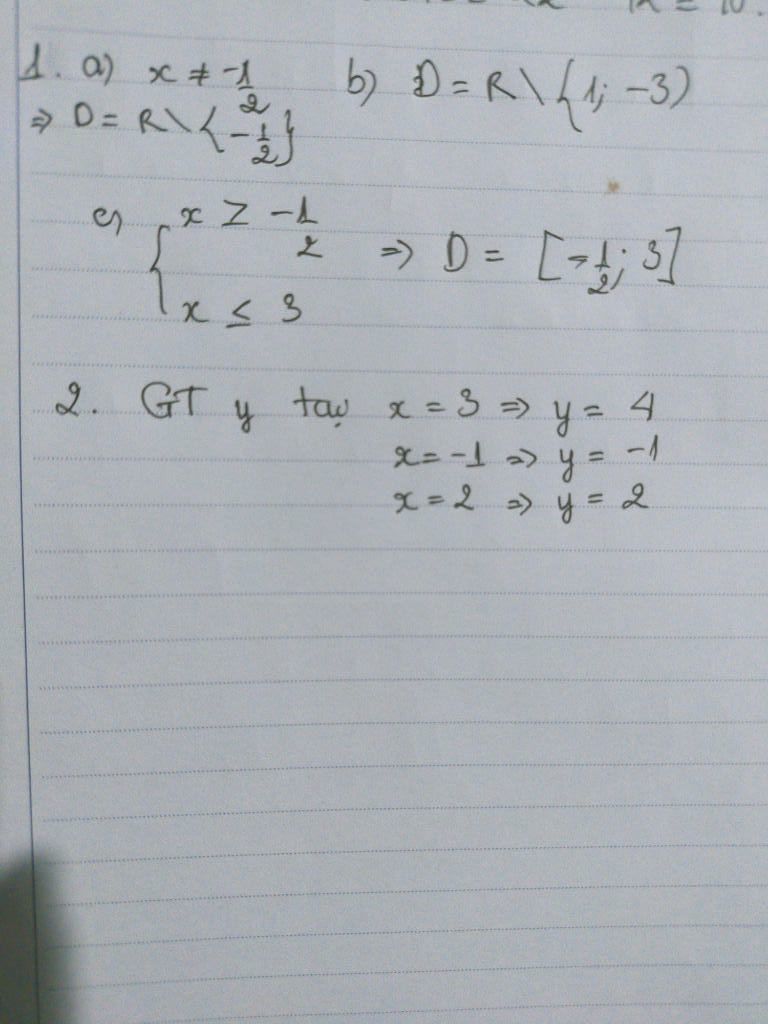 1. a) x ≠ -1/2 b) D = R \ {1; -3)
⇒ D = R \ {-1/2}
c) { x ≥ -1/2
x ≤ 3 ⇒ D = [-1/2; 3]
2. GT y tại x = 3 ⇒ y = 4
x = -1 ⇒ y = -1
x = 2 ⇒ y = 2